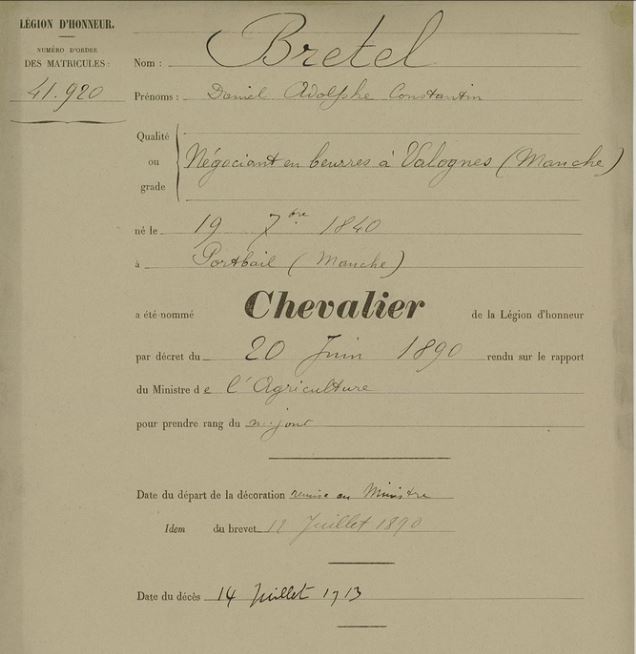 LÉGION D'HONNEUR.
NUMÉRO D'ORDRE
DES MATRICULES :
41.920
Nom : Bretel
Prénoms : Daniel Adolphe Constantin
Qualité
ou
grade
Négociant en beurres à Valognes (Manche)
né le 19 7bre 1840
à Portbail (Manche)
a été nommé Chevalier de la Légion d'honneur
par décret du 20 Juin 1890 rendu sur le rapport
du Ministre de l'Agriculture
pour prendre rang du même jour
Date du départ de la décoration remise au Ministre
Idem du brevet 12 Juillet 1890
Date du décès 14 Juillet 1913